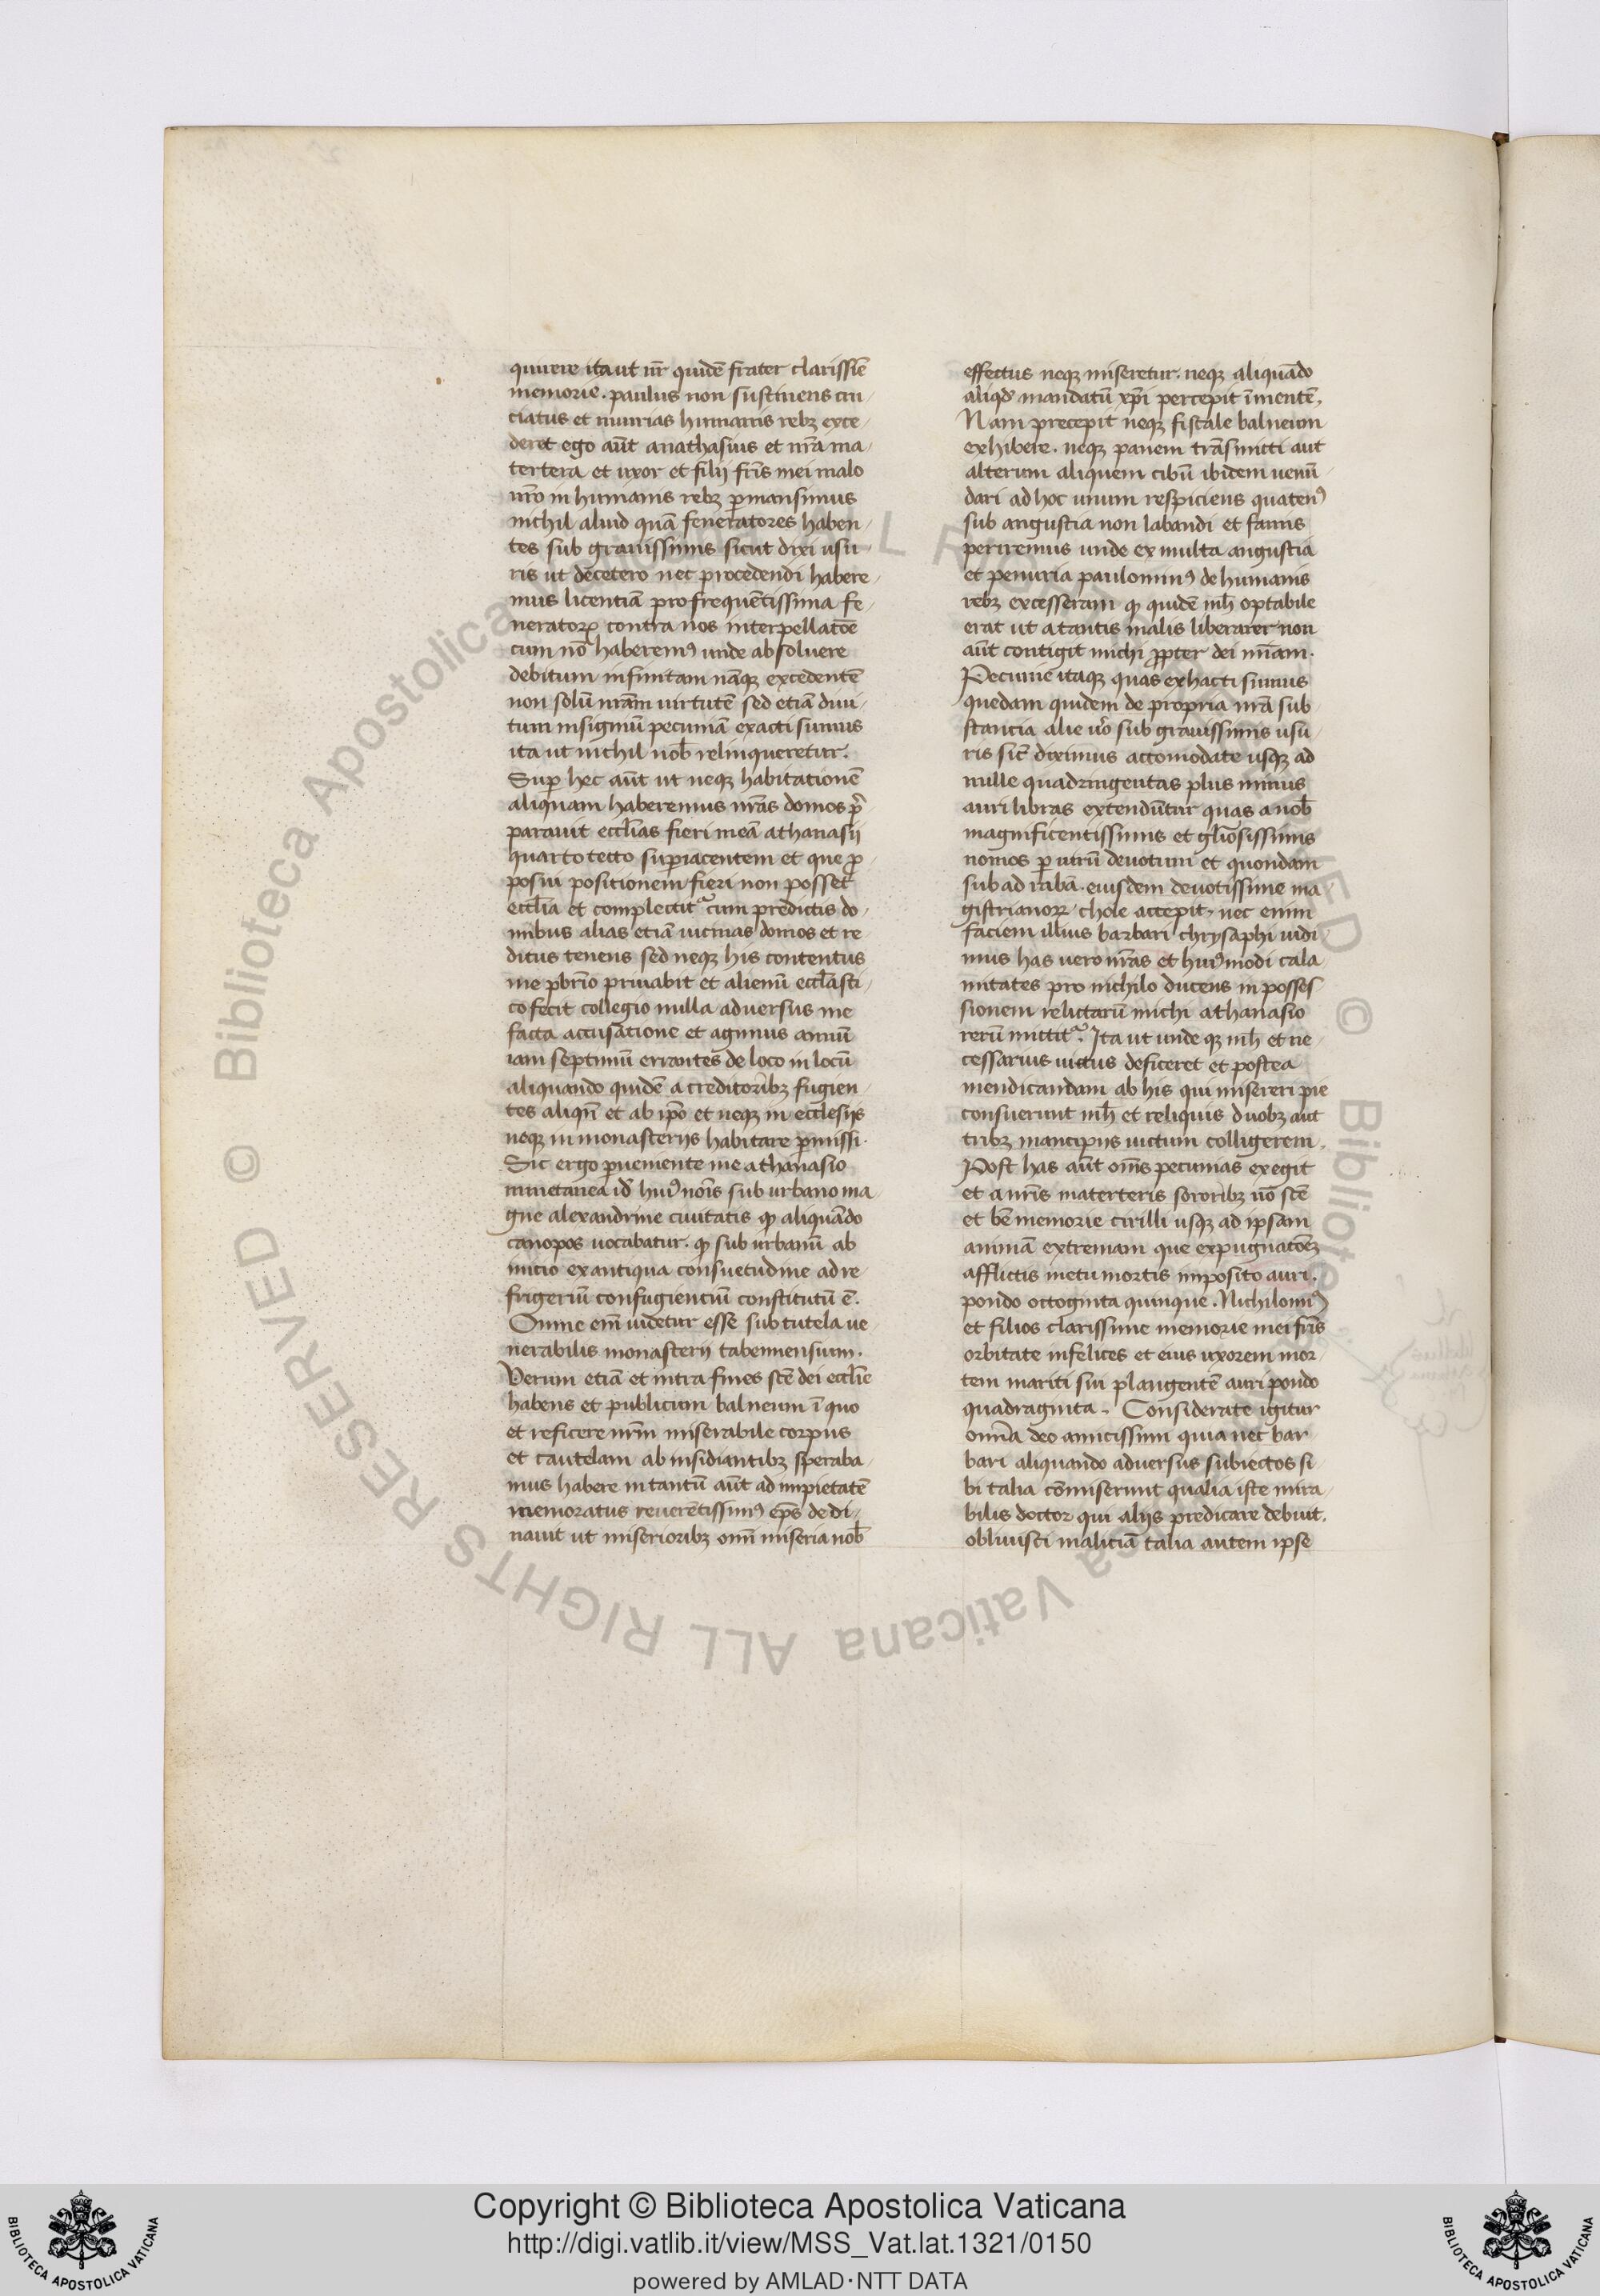 quirere ita ut nr̄ quidē frater clarissīe
memorie. paulus non sustinens cru-
ciatus et iniurias humanis rebꝫ exce-
deret ego aūt anathasius et nr̄a ma-
tertera et uxor et filij fr̄is mei malo
nr̄o in humanis rebꝫ ꝑmansimus
nichil aliud quā feneratores haben-
tes sub grauissimis sicut dixi usu-
ris ut decetero nec procedendi habere-
mus licentiā pro frequētissima fe-
neratorꝝ contra nos interpellatōe
cum nō haberemꝰ unde absoluere
debitum infinitam nāqꝫ excedentē
non solū nr̄am uirtutē sed etiā diui-
tum insigniū pecuniā exacti sumus
ita ut nichil nob̄ relinqueretur.
Suꝑ hec aūt ut neqꝫ habitationē
aliquam haberemus nr̄as domos p̄
parauit eccl̄ias fieri meā athanasij
quarto tecto suꝑiacentem et que ꝓ-
posui positionem fieri non posset
eccl̄ia et complectit᷑ cum predictis do-
mibus alias etiā uicinas domos et re-
ditus tenens sed neqꝫ his contentus
me p̄br̄io priuabit et alienū eccl̄asti-
co fecit collegio nulla aduersus me
facta accusatione et agimus annū
iam septimū errantes de loco in locū
aliquando quidē a creditoribꝫ fugien-
tes aliqn̄ et ab ip̄o et neqꝫ in ecclesijs
neqꝫ in monasterijs habitare ꝑmissi.
Sic ergo ꝑueniente me athanasio
inmetanea id̄ huiꝰ nōis sub urbano ma
gne alexandrine ciuitatis qꝫ aliquādo
canopos uocabatur. qꝫ sub urbanū ab
inicio ex antiqua consuetudine ad re-
frigeriū confugienciū constitutū ē.
Omne em̄ uidetur esse sub tutela ue
nerabilis monasterij tabennensium.
Verum etiā et intra fines sc̄e dei eccl̄ie
habens et publicum balneum ī quo
et reficere nr̄m miserabile corpus
et cautelam ab insidiantibꝫ speraba-
mus habere in tantū aūt ad impietatē
memoratus reuerētissimꝰ ep̄s de di-
nauit ut miserioribꝫ om̄i miseria nob̄
effectus neqꝫ miseretur. neqꝫ aliquādo
aliqd̄ mandatū xp̄i percepit ī mentē.
Nam precepit neqꝫ fiscale balneum
exhibere. neqꝫ panem trāsmitti aut
alterum aliquem cibū ibidem uenū-
dari ad hoc unum respiciens quatenꝰ
sub angustia non labandi et famis
periremus unde ex multa angustia
et penuria paulominꝰ de humanis
rebꝫ excesseram qꝫ quidē mh̄ optabile
erat ut a tantis malis liberarer non
aūt contigit michi ꝓpter dei mīam.
Pecunie itaqꝫ quas exhacti sumus
quedam quidem de propria nr̄a sub-
stancia alie ūo sub grauissimis usu-
ris sic̄ diximus accomodate usqꝫ ad
mille quadringentas plus minus
auri libras extendūtur quas a nob̄
magnificentissimis et gl̄iosissimis
nomos ꝑ uirū deuotum et quondam
sub ad iubā. eiusdem deuotissime ma
gistrianorꝝ chole accepit. nec enim
faciem illius barbari chrysaphi uidi-
mus has uero nr̄as et huiꝰmodi cala
mitates pro nichilo ducens in posses
sionem relictarū michi athanasio
rerū mittit᷑. Ita ut unde qꝫ mh̄ et ne
cessarius uictus deficeret et postea
mendicandam ab his qui misereri pie
consuerunt mh̄ et reliquis duobꝫ aut
tribꝫ mancipijs uictum colligerem.
Post has aūt om̄s pecunias exegit
et a nr̄is materteris sororibꝫ ūo sc̄e
et be᷑ memorie cirilli usqꝫ ad ipsam
animā extremam que expugnatōeꝫ
afflictis metu mortis imposito auri.
pondo octoginta quinque. Nichilominꝰ
et filios clarissime memorie mei fr̄is
orbitate infelices et eius uxorem mor-
tem mariti sui plangentē auri pondo
quadraginta. Considerate igitur
omīa deo amicissimi quia nec bar
bari aliquando aduersus subiectos si
bi talia cōmiserunt qualia iste mira-
bilis doctor qui alijs predicare debuit.
obliuisci maliciā talia autem ipse
© Biblioteca Apostolica Vaticana ALL RIGHTS RESERVED
Copyright © Biblioteca Apostolica Vaticana
http://digi.vatlib.it/view/MSS_Vat.lat.1321/0150
powered by AMLAD·NTT DATA
BIBLIOTECA APOSTOLICA VATICANA
BIBLIOTECA APOSTOLICA VATICANA